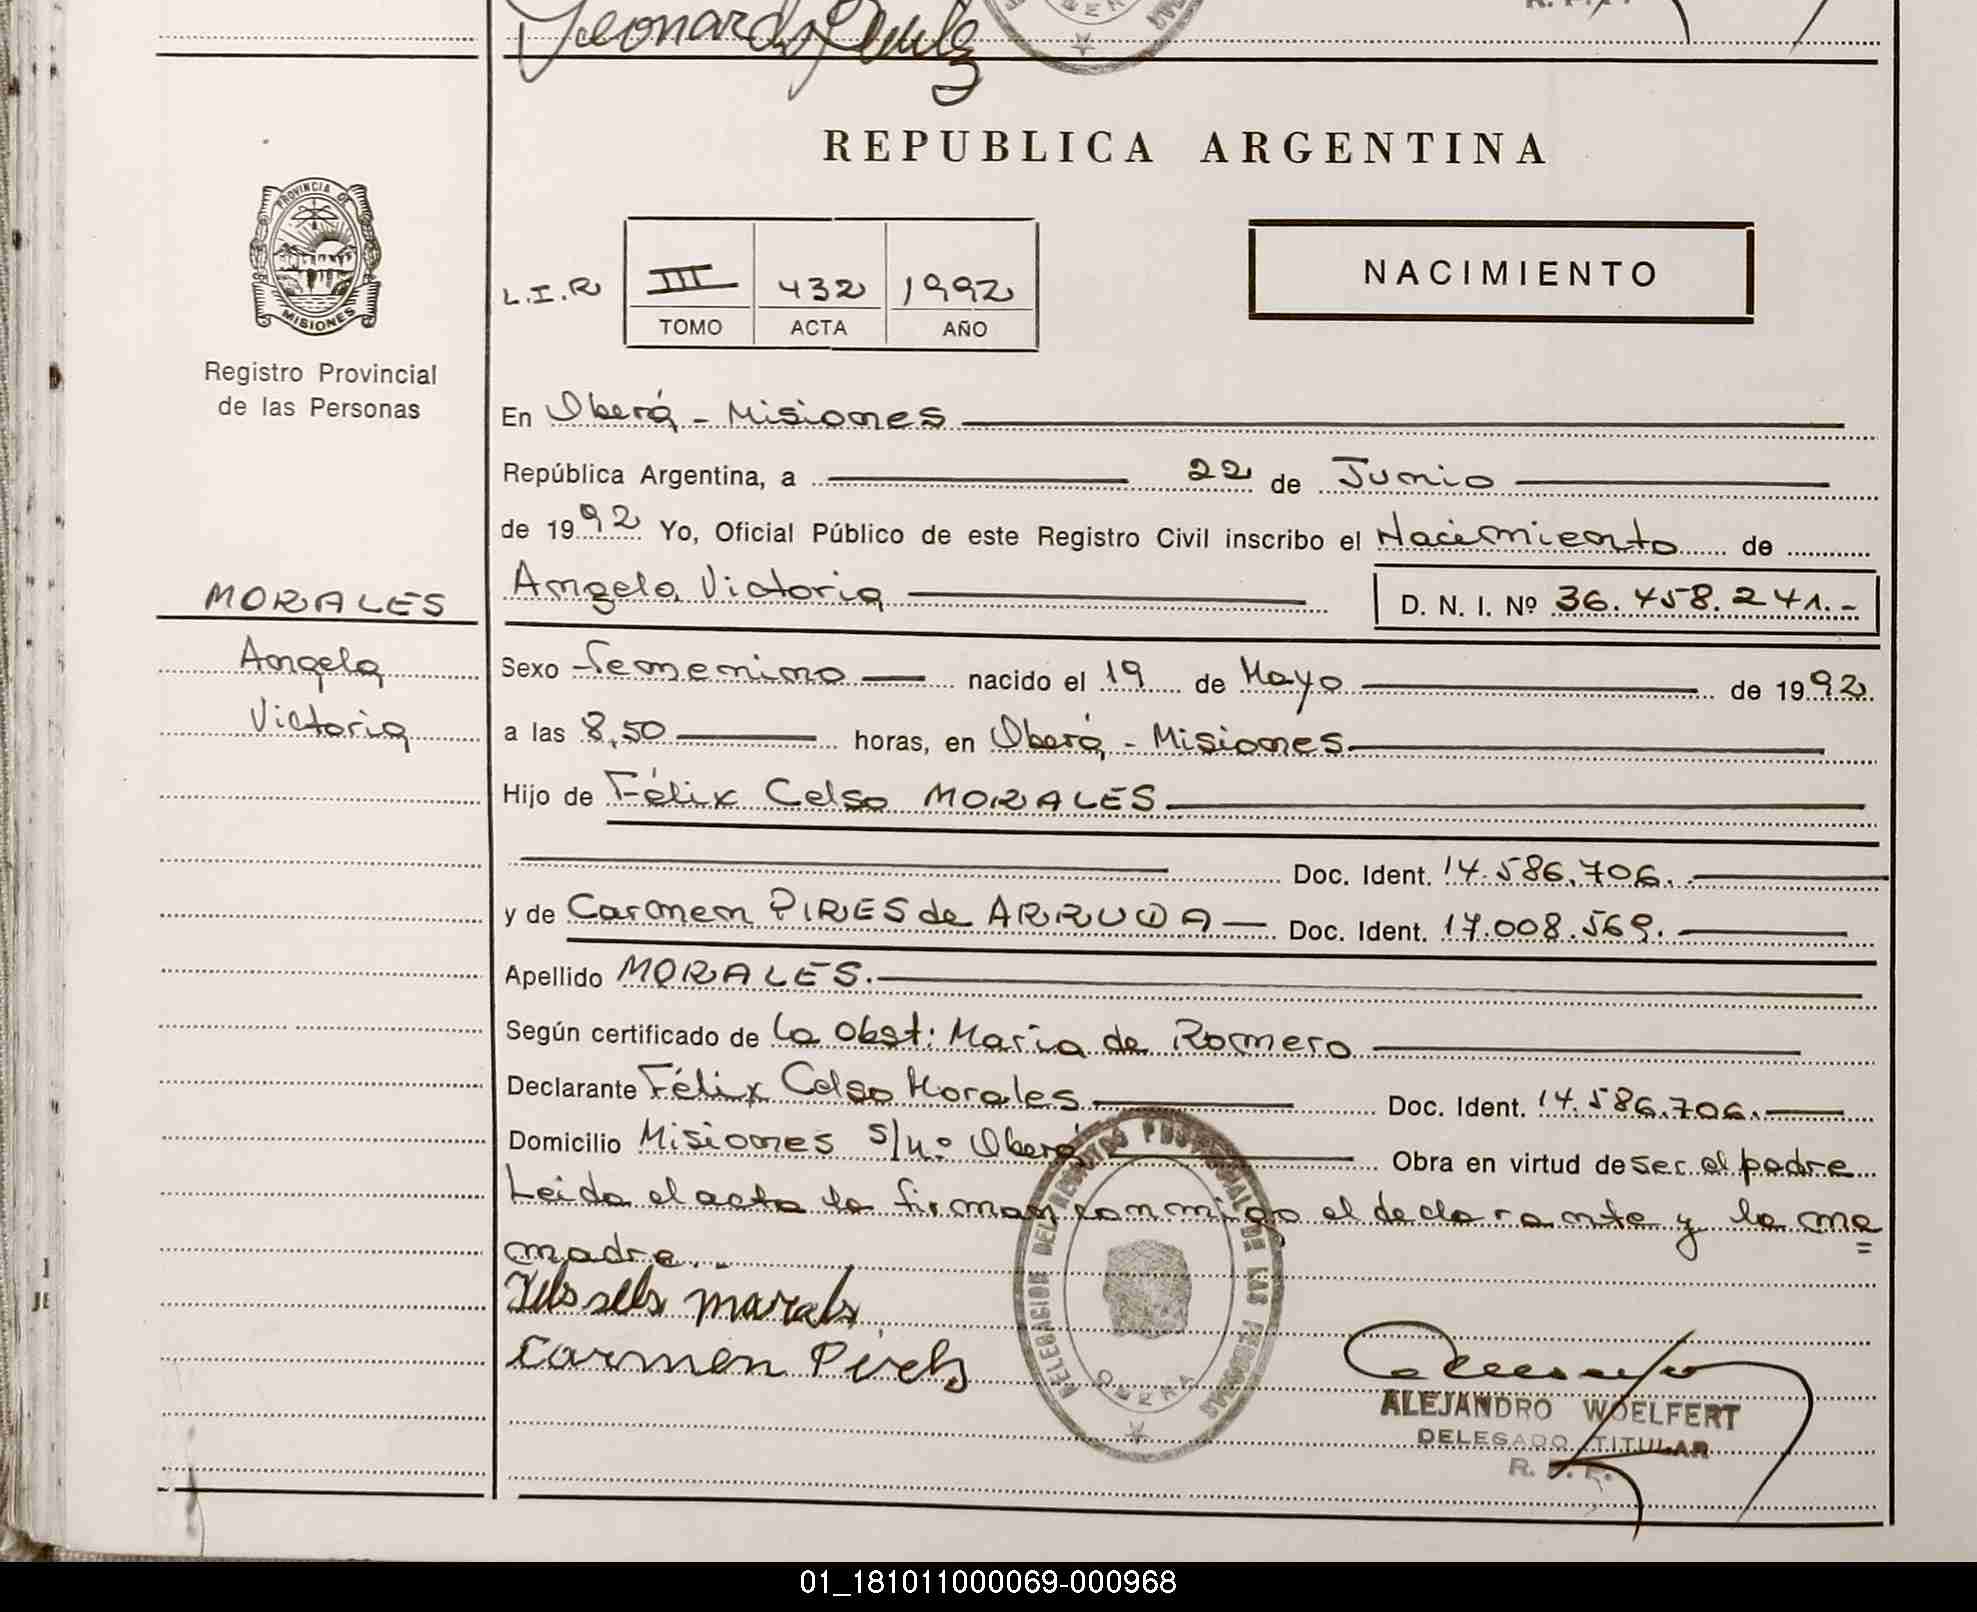 REPUBLICA ARGENTINA
PROVINCIA DE
MISIONES
Registro Provincial
de las Personas
NACIMIENTO
L.I.R III 432 1992
TOMO ACTA AÑO
En Oberá - Misiones
República Argentina, a 22 de Junio
de 1992 Yo, Oficial Público de este Registro Civil inscribo el Nacimiento de
MORALES
Angela Victoria D. N. I. Nº 36.458.241.-
Angela
Victoria
Sexo Femenino nacido el 19 de Mayo de 1992.
a las 8,50 horas, en Oberá - Misiones
Hijo de Félix Celso MORALES
Doc. Ident. 14.586.706.
y de Carmen PIRES de ARRUDA Doc. Ident. 17.008.569.
Apellido MORALES.
Según certificado de la Obst: Maria de Romero
Declarante Félix Celso Morales Doc. Ident. 14.586.706.
Domicilio Misiones s/nº Oberá Obra en virtud de ser el padre
Leida el acta la firman conmigo el declarante y la ma
madre..
DELEGACION DEL REGISTRO PROVINCIAL DE LAS PERSONAS
OBERA
Carmen Pires
ALEJANDRO WOELFERT
DELEGADO TITULAR
R. P. P.
01_181011000069-000968